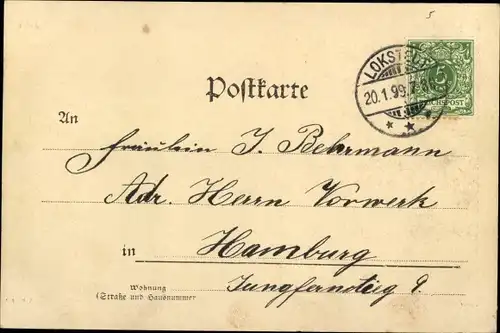 5
LOKSTEDT
20.1.99. 7-8
5
REICHSPOST
Postkarte
An
Fräulein J. Behrmann
Adr. Herrn Vorwerk
in Hamburg
Wohnung
(Straße und Hausnummer
Jungfernstieg 9